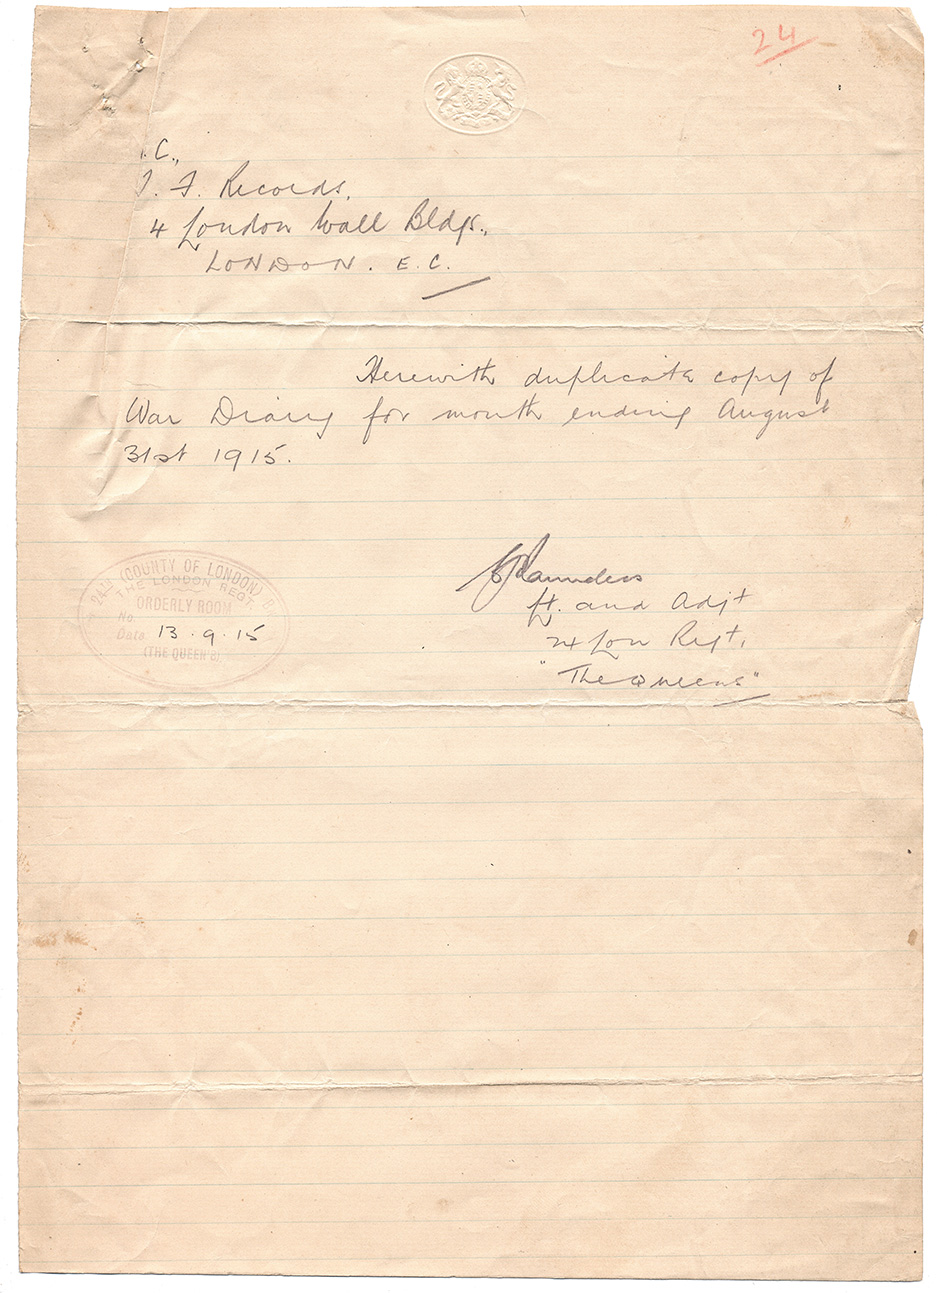 24
. C.,
T. F. Records,
4 London Wall Bldgs.,
LONDON. E. C.
Herewith duplicate copy of
War Diary for month ending August
31st 1915.
Saunders
Lt. and Adjt
24 Lon Regt.
"The Queens"
24TH (COUNTY OF LONDON) B
THE LONDON REGT.
ORDERLY ROOM
No.
Date 13.9.15
(THE QUEEN'S)